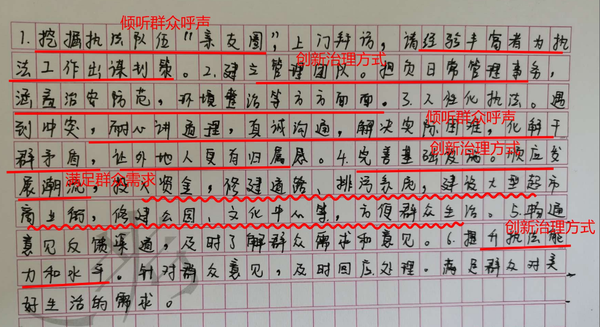 倾听群众呼声
1.挖掘执法队伍“亲友圈”,上门拜访,请经验丰富者为执
创新治理方式
法工作出谋划策。2.建立管理团队。担负日常管理事务,
涵盖治安防范,环境整治等方方面面。3.人性化执法。遇
倾听群众呼声
到冲突,耐心讲道理,真诚沟通,解决实际困难,化解干
创新治理方式
群矛盾,让外地人更有归属感。4.完善基础设施。顺应发
满足群众需求
展潮流,投入资金,修建道路、排污系统,建设大型超市
商业街,修建公园、文化中心等,方便群众生活。5.畅通
创新治理方式
意见反馈渠道,及时了解群众需求和意见。6.提升执法能
力和水平。针对群众意见,及时回应处理。满足群众对美
好生活的需求。